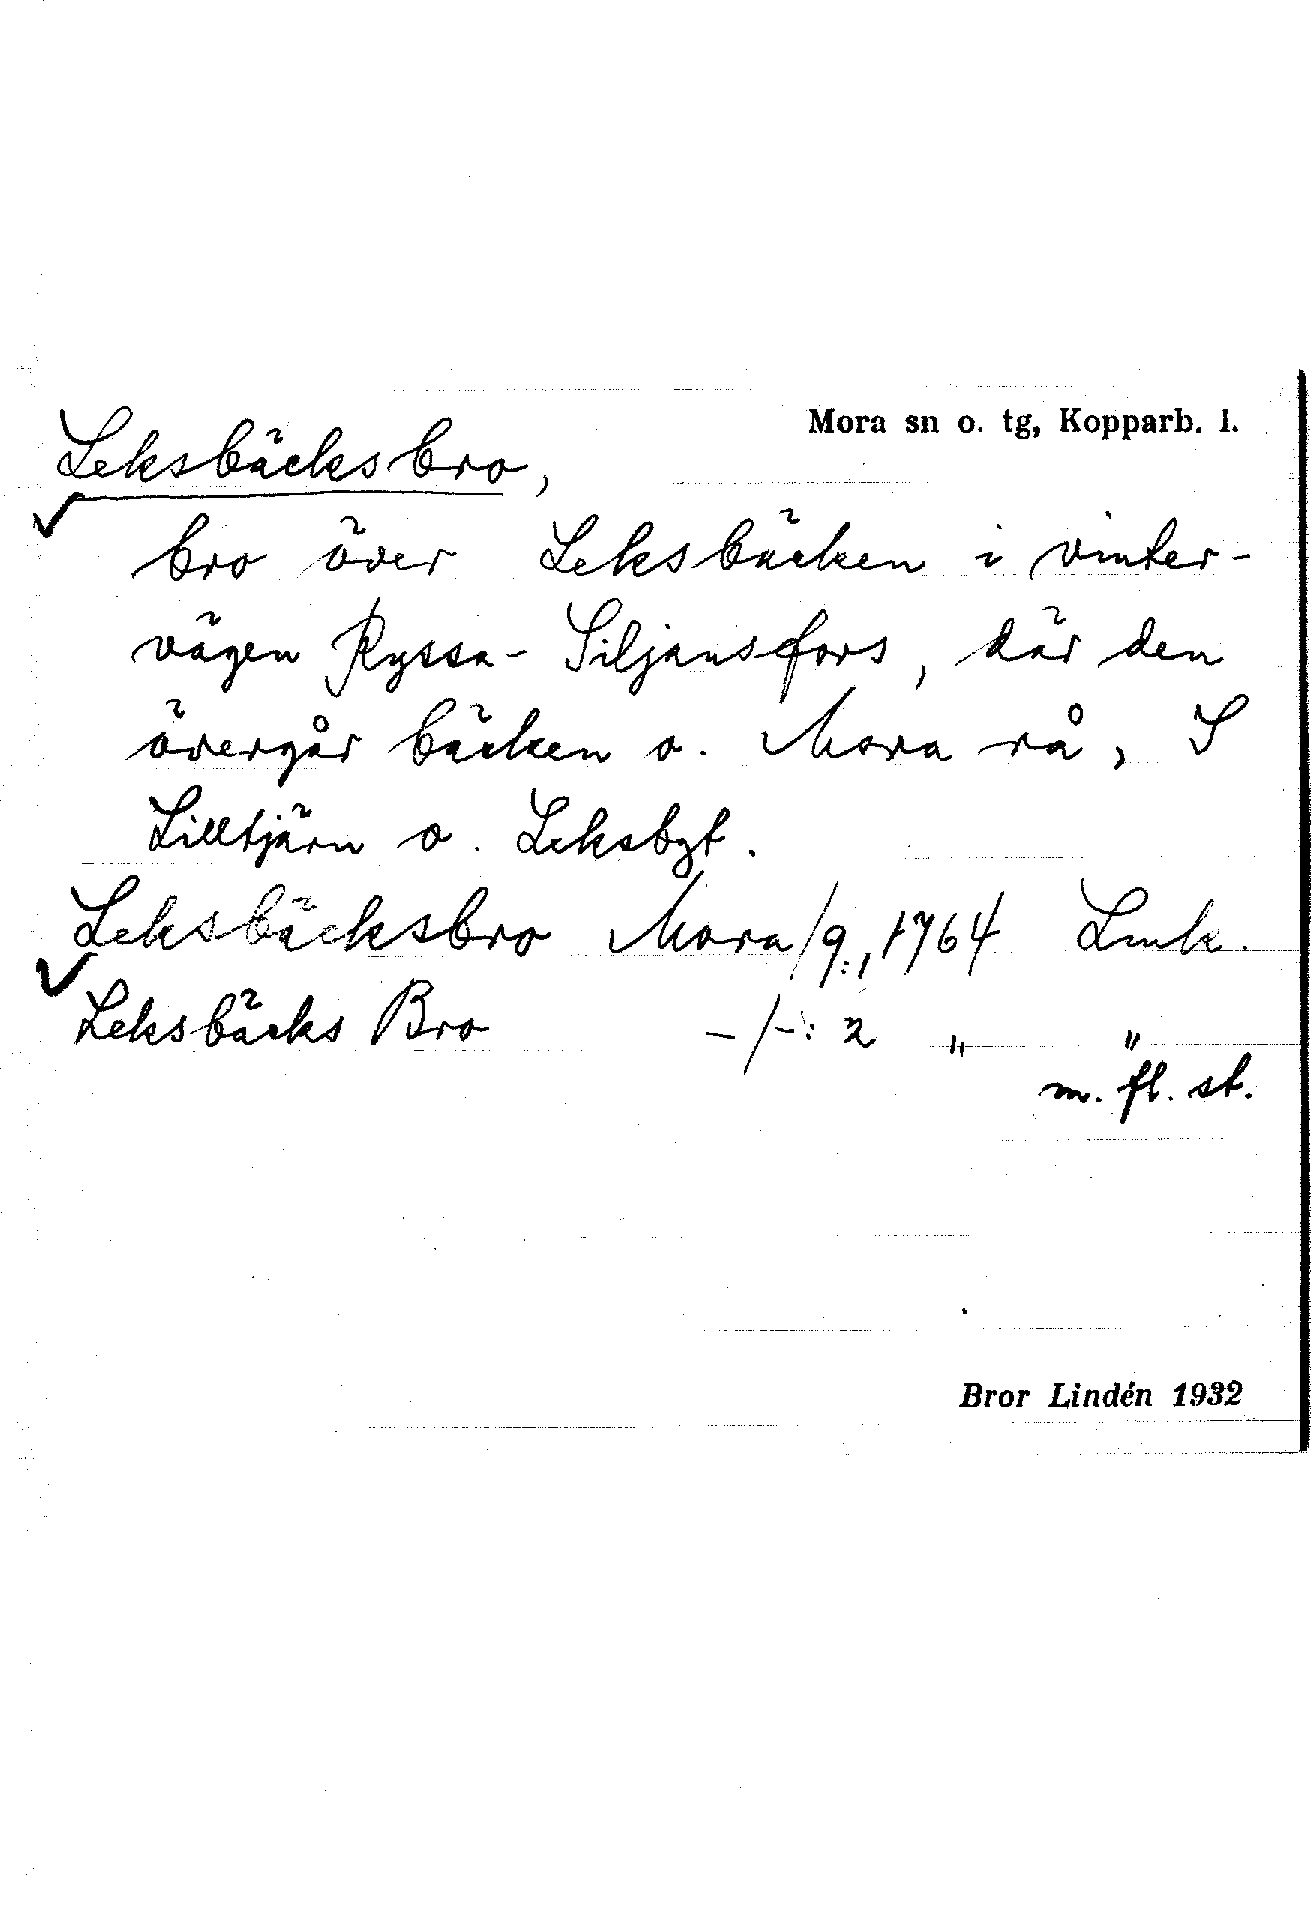 Mora sn o. tg, Kopparb. l.
Leksbäcksbro,
bro över Leksbäcken i vinter-
vägen Ryssa- Siljansfors, där den
övergår bäcken o. Mora rå, S
Lilltjärn o. Leksbgt.
Leksbäcksbro Mora/9:1, 1764 Lmk.
Leksbäcks Bro -/-: 2 " "
m. fl. st.
Bror Lindén 1932